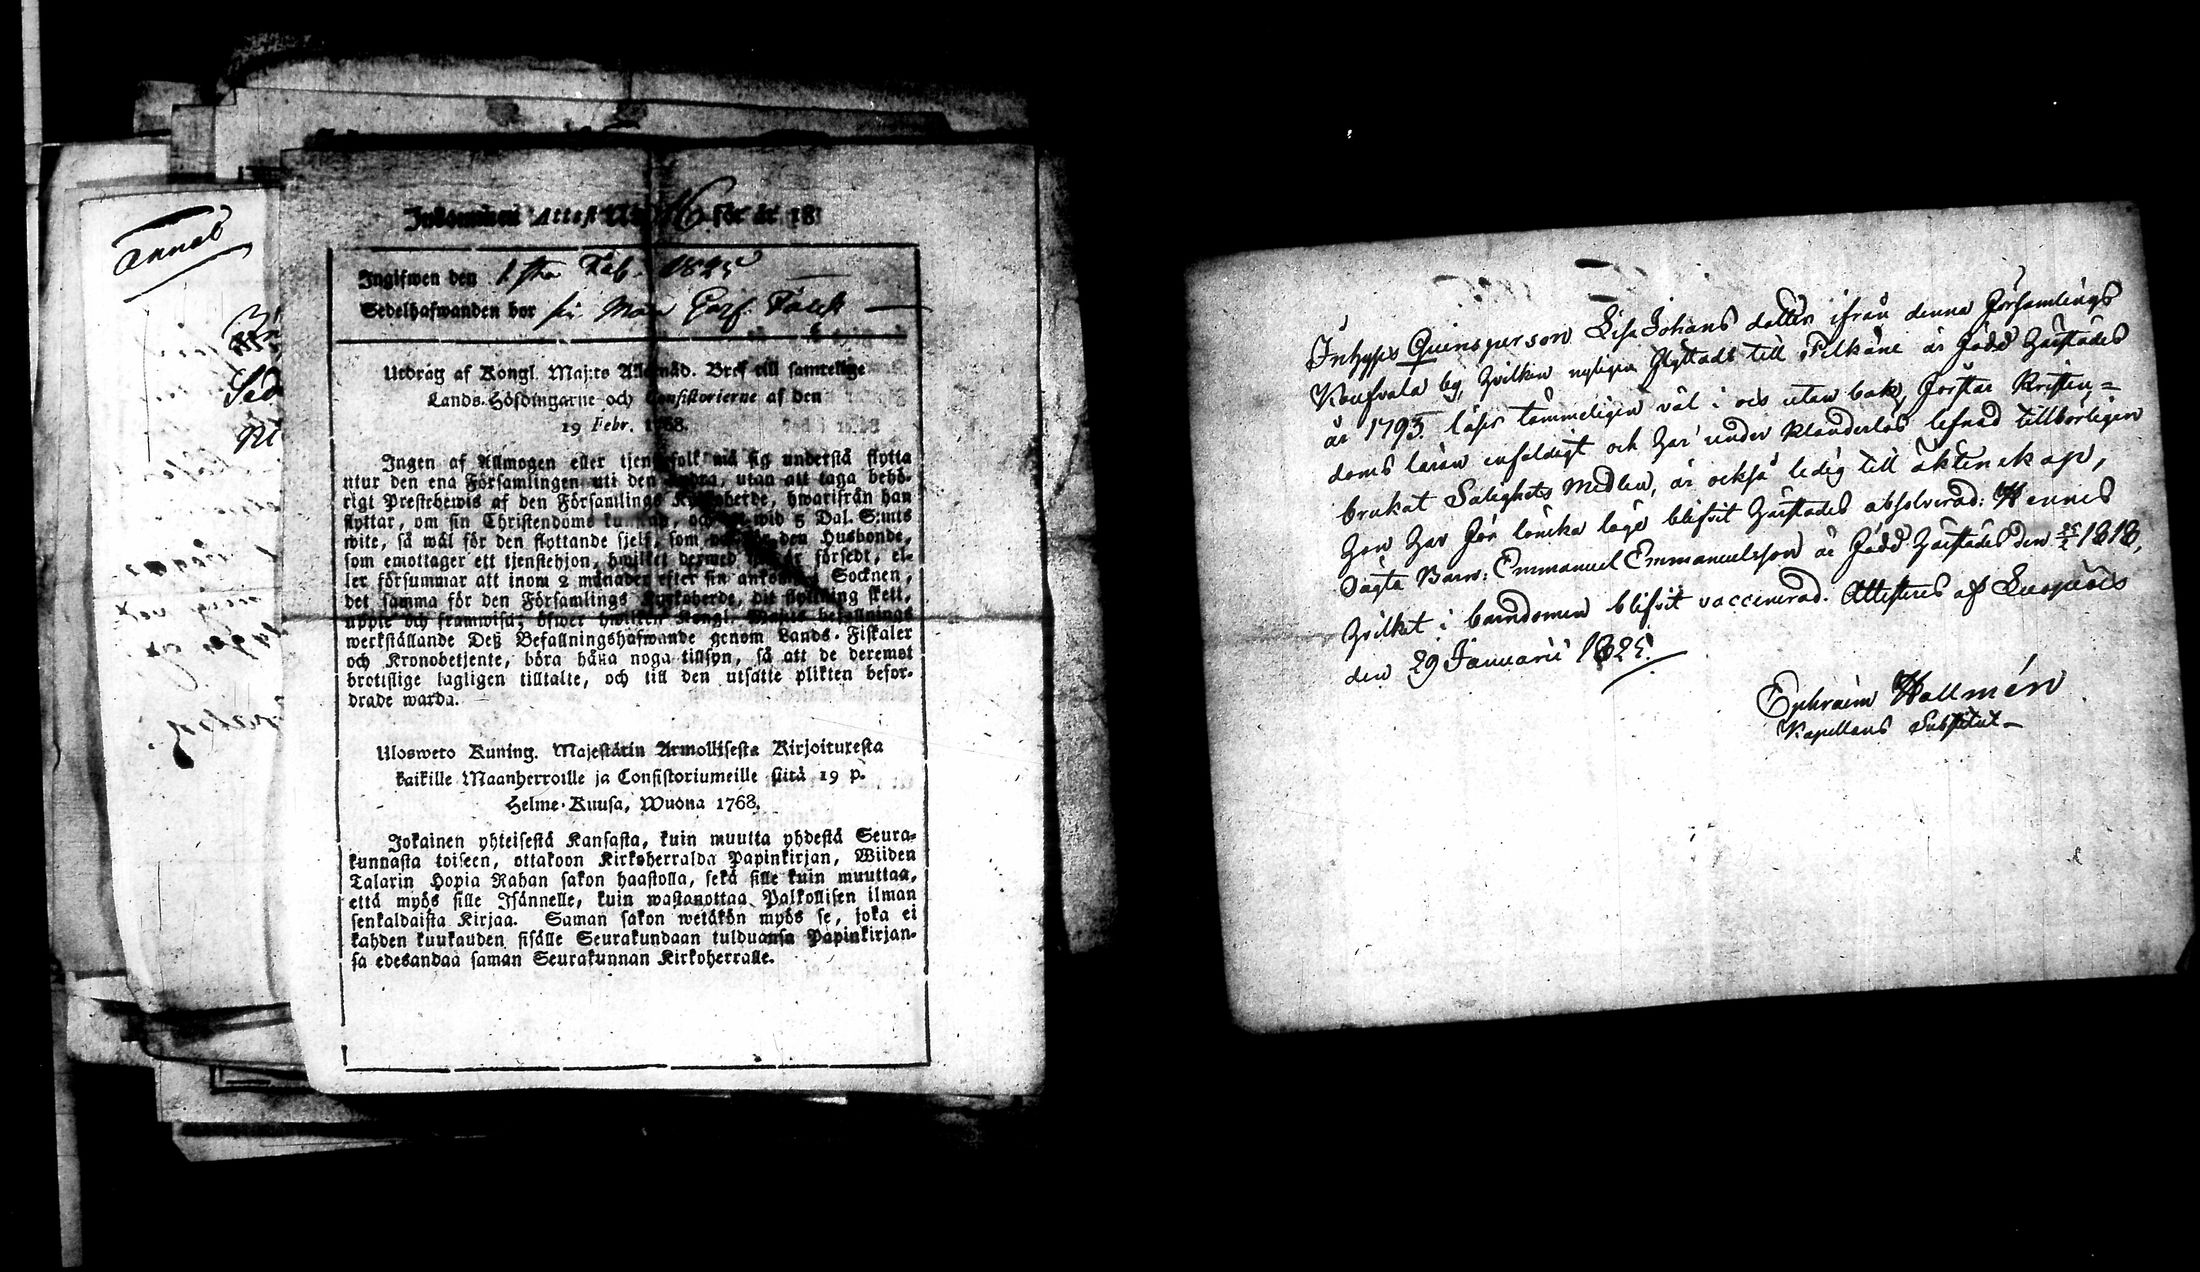 Annab
Inkommen Attest N:o 16 för år 18
Ingifwen den 1 sta Feb. 1825
Sedelhafwanden bor
Utdrag af Kongl. Maj:ts Allernåd. Bref till samtelige
Lands-Höfdingarne och Consistorierne af den
19 Febr. 1768.
Ingen af Allmogen eller tjenstefolk må sig understå flytta
utur den ena Församlingen uti den andra, utan att taga behö-
rigt Prestebewis af den Församlings Kyrkoherde, hwarifrån han
flyttar, om sin Christendoms kunskap, och wid 5 Dal. S:mts
wite, så wäl för den flyttande sjelf, som den Husbonde,
som emottager ett tjenstehjon, hwilket dermed är försedt, el-
ler försummar att inom 2 månader efter sin ankomst Socknen,
det samma för den Församlings Kyrkoherde, dit flyttning skett,
uppte och framwisa; öfwer hwilken Kongl. Maj:ts befallnings
werkställande Deß Befallningshafwande genom Lands-Fiskaler
och Kronobetjente, böra hålla noga tillsyn, så att de deremot
brottslige lagligen tilltalte, och till den utsatte plikten befor-
drade warda.
Ulosweto Kuning. Majestätin Armollisesta Kirjoituresta
kaikille Maanherroille ja Consistoriumeille siitä 19 p.
Helme-Kuusa, Wuona 1768.
Jokainen yhteisestä Kansasta, kuin muutta yhdestä Seura-
kunnasta toiseen, ottakoon Kirkoherralda Papinkirjan, Wiiden
Talarin Hopia Rahan sakon haastolla, sekä sille kuin muuttaa,
että myös sille Isännelle, kuin wastanottaa Palkollisen ilman
senkaldaista Kirjaa. Saman sakon wetäkön myös se, joka ei
kahden kuukauden sisälle Seurakundaan tulduansa Papinkirjan-
sa edesandaa saman Seurakunnan Kirkoherralle.
Inhyses Qvinsperson Lisa Johans dotter ifrån denna Församlings
by, hvilken nyligen flyttadt till Pelkäne är född härstädes
år 1793. läser tämmeligen väl i och utan bok, förstår Kristen=
doms läran enfaldigt och har under klanderlös lefnad tillbörligen
brukat Salighets Medlen, är också ledig till äktenskap,
hon har för lönska läge blifvit härstädes absolverad: Hennes
oägta Barn: Emmanuel Emmanuelsson är född härstädes den 1818,
hvilket i barndomen blifvit vaccinerad. Attesteras af Luopiois
den 29 Januarii 1825.
Ephraim Hallmén
Kapellans Substitut